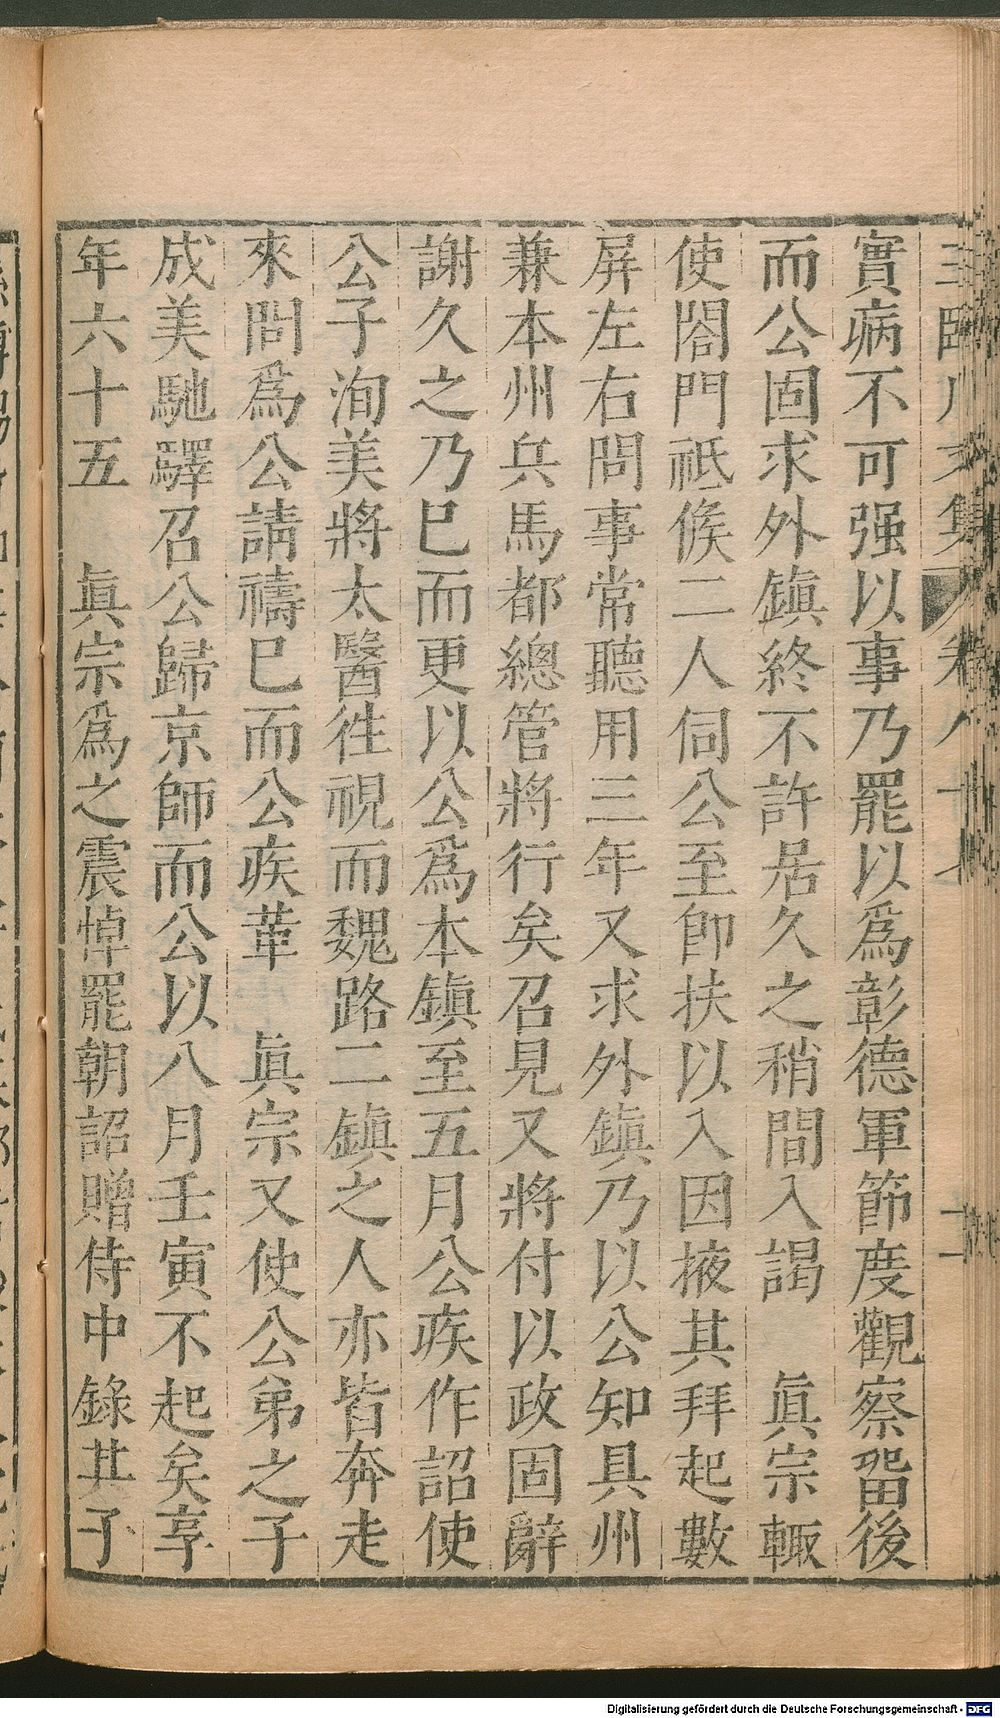 實病不可强以事乃罷以爲彰德軍節度觀察畱後
而公固求外鎮終不許居久之稍間入謁　眞宗輙
使閤門祗候二人伺公至卽扶以入因掖其拜起數
屏左右問事常聽用三年又求外鎮乃以公知具州
兼本州兵馬都總管將行矣召見又將付以政固辭
謝久之乃已而更以公爲本鎮至五月公疾作詔使
公子洵美將太醫徃視而魏路二鎮之人亦皆奔走
來問爲公請禱巳而公疾革　眞宗又使公弟之子
成美馳驛召公歸京師而公以八月壬寅不起矣享
年六十五　眞宗爲之震悼罷朝詔贈侍中錄其子
Digitalisierung gefördert durch die Deutsche Forschungsgemeinschaft - DFG